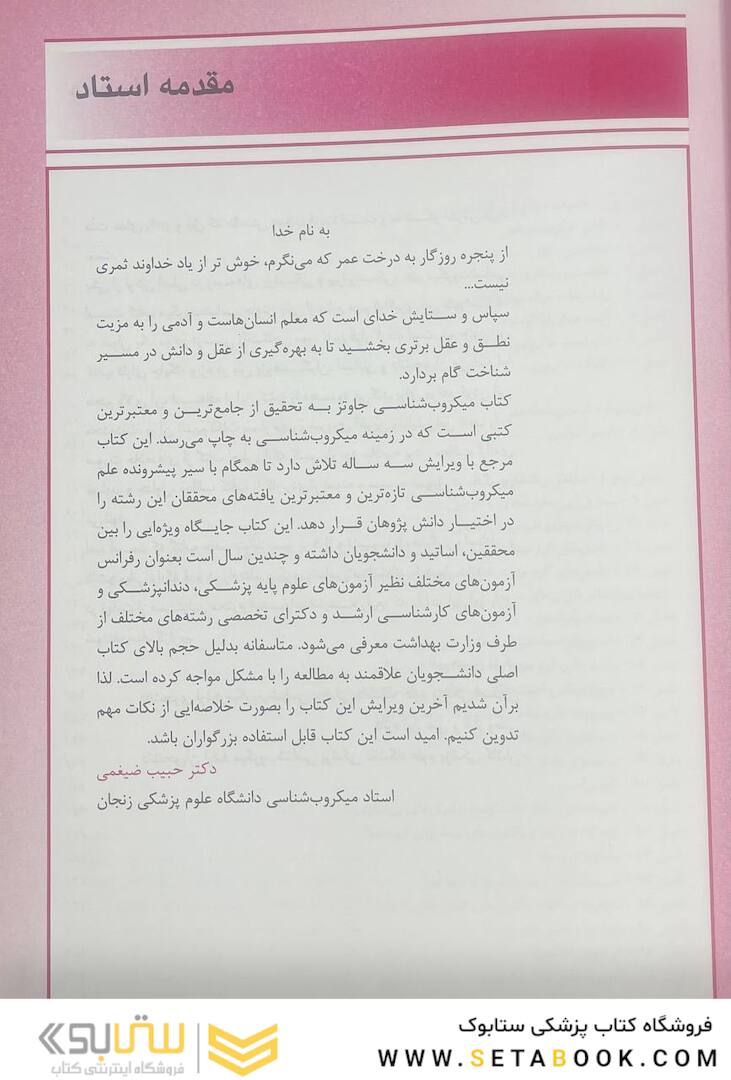 مقدمه استاد
به نام خدا
از پنجره روزگار به درخت عمر که می‌نگرم، خوش تر از یاد خداوند ثمری
نیست...
سپاس و ستایش خدای است که معلم انسان‌هاست و آدمی را به مزیت
نطق و عقل برتری بخشید تا به بهره‌گیری از عقل و دانش در مسیر
شناخت گام بردارد.
کتاب میکروب‌شناسی جاوتز به تحقیق از جامع‌ترین و معتبرترین
کتبی است که در زمینه میکروب‌شناسی به چاپ می‌رسد. این کتاب
مرجع با ویرایش سه ساله تلاش دارد تا همگام با سیر پیشرونده علم
میکروب‌شناسی تازه‌ترین و معتبرترین یافته‌های محققان این رشته را
در اختیار دانش پژوهان قرار دهد. این کتاب جایگاه ویژه‌ایی را بین
محققین، اساتید و دانشجویان داشته و چندین سال است بعنوان رفرانس
آزمون‌های مختلف نظیر آزمون‌های علوم پایه پزشکی، دندانپزشکی و
آزمون‌های کارشناسی ارشد و دکترای تخصصی رشته‌های مختلف از
طرف وزارت بهداشت معرفی می‌شود. متاسفانه بدلیل حجم بالای کتاب
اصلی دانشجویان علاقمند به مطالعه را با مشکل مواجه کرده است. لذا
برآن شدیم آخرین ویرایش این کتاب را بصورت خلاصه‌ایی از نکات مهم
تدوین کنیم. امید است این کتاب قابل استفاده بزرگواران باشد.
دکتر حبیب ضیغمی
استاد میکروب‌شناسی دانشگاه علوم پزشکی زنجان
فروشگاه کتاب پزشکی ستابوک
WWW.SETABOOK.COM
ستابوک
فروشگاه اینترنتی کتاب